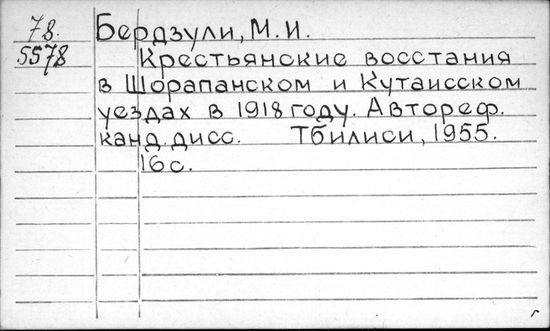 78. Бердзули, М.И.
5578 Крестьянские восстания
в Шорапанском и Кутаисском
уездах в 1918 году. Автореф.
канд. дисс. Тбилиси, 1955.
16 с.